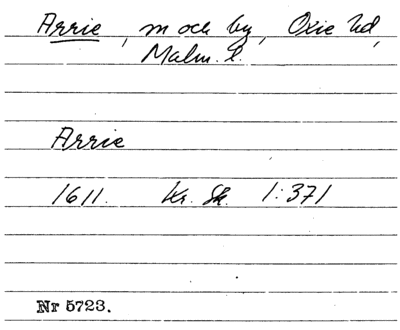 Arrie, m och by, Oxie hd,
Malm. l.
Arrie
1611. Kr. Sk. 1:371
Nr 5723.